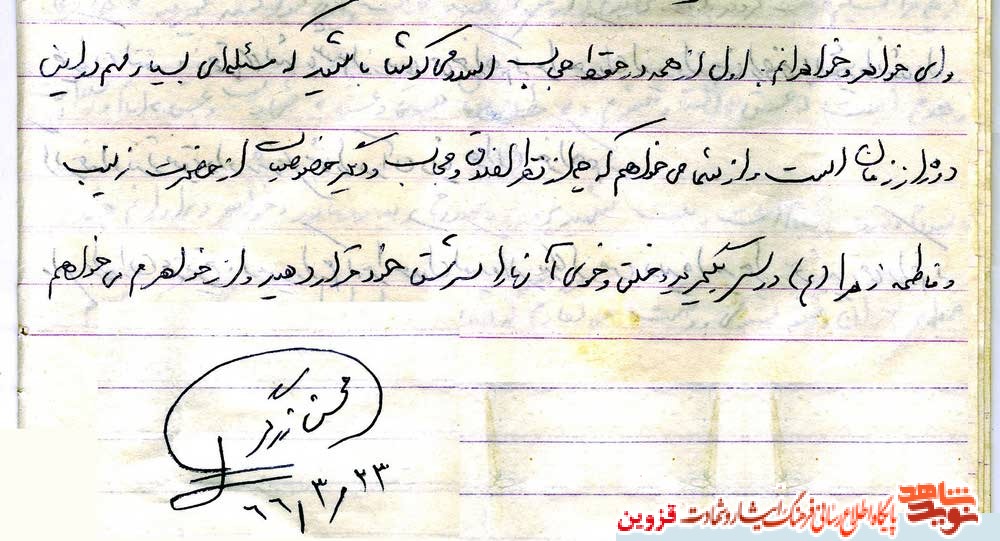 و ای خواهر و خواهرانم اول از همه در حفظ حجاب اسلامی کوشا باشید که مسئله‌ای بسیار مهم در این
دوره از زمان است و از شما می‌خواهم که چه از نظر اخلاق و حجاب و دیگر خصوصیات از حضرت زینب
و فاطمه زهرا (س) درس بگیرید و خلق و خوی آنها را سرشت خود قرار دهید و از خواهرم می‌خواهم
محسن زرگر
۶۶/۳/۲۳
نوید شاهد
پایگاه اطلاع رسانی فرهنگ ایثار و شهادت قزوین